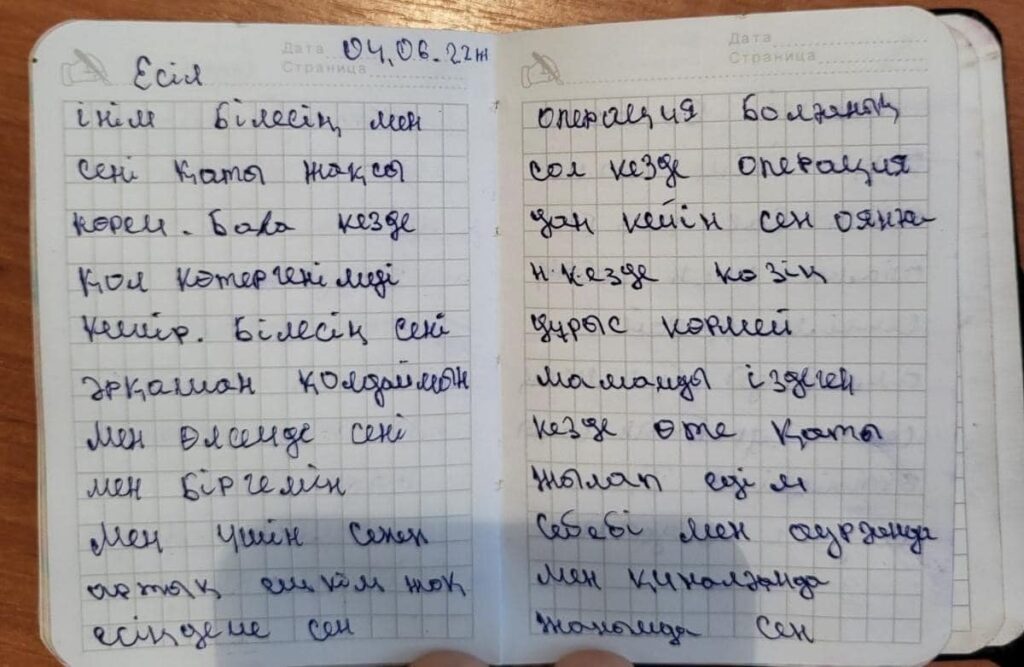 Дата 04.06.22ж
Страница
Есіл
інім білесің мен
сені қаты жақсы
көрем. Бала кезде
қол көтергенімді
кешір. Білесің сені
әрқашан қолдаймын
мен өлсемде сені
мен біргемін
Мен үшін сенен
артық ешкім жоқ
есіңдеме сен
Дата
Страница
операция болғанық
сол кезде операция
дан кейін сен оянға
н.кезде көзің
дұрыс көрмей
мамамды іздеген
кезде өте қаты
жылап едім
себебі мен ауырғанда
мен қиналғанда
жанымда сен